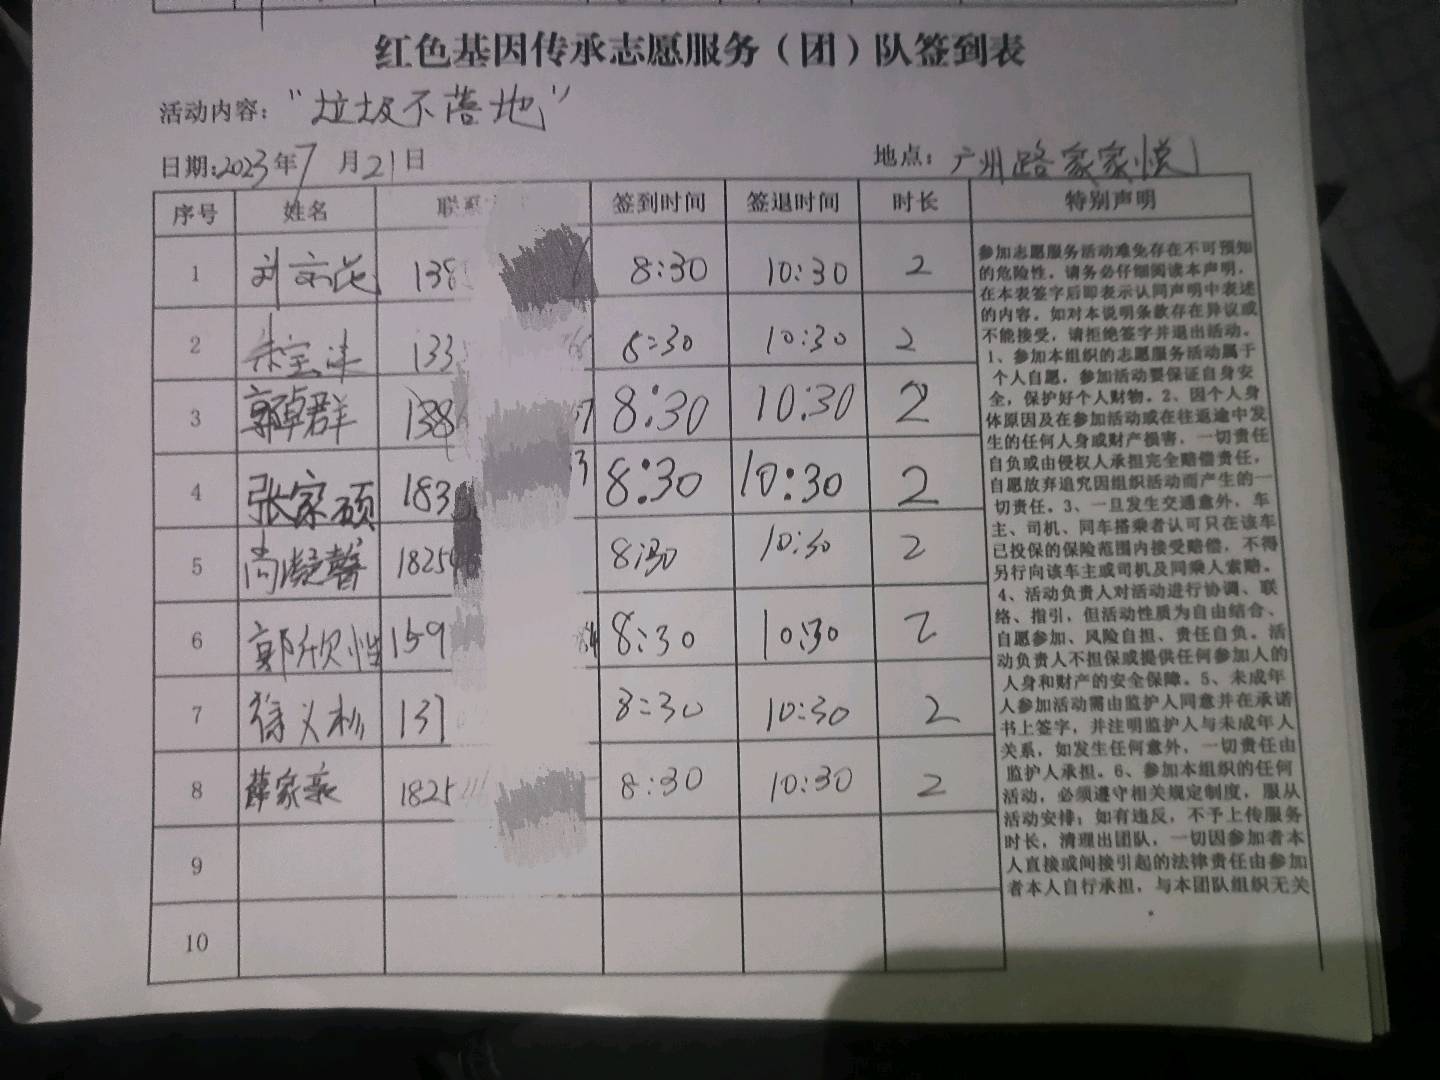 红色基因传承志愿服务（团）队签到表
活动内容："垃圾不落地"
日期:2023年7月21日 地点：广州路家家悦
序号 姓名 联系 签到时间 签退时间 时长 特别声明
1 138 8:30 10:30 2
2 133 8:30 10:30 2
3 郭卓群 138 8:30 10:30 2
4 张家硕 183 8:30 10:30 2
5 尚凝馨 1825 8:30 10:30 2
6 郭欣怡 159 8:30 10:30 2
7 徐义杉 137 8:30 10:30 2
8 薛家豪 1825 8:30 10:30 2
9
10
参加志愿服务活动难免存在不可预知
的危险性，请务必仔细阅读本声明，
在本表签字后即表示认同声明中表述
的内容。如对本说明条款存在异议或
不能接受，请拒绝签字并退出活动。
1、参加本组织的志愿服务活动属于
个人自愿，参加活动要保证自身安
全，保护好个人财物。2、因个人身
体原因及在参加活动或在往返途中发
生的任何人身或财产损害，一切责任
自负或由侵权人承担完全赔偿责任，
自愿放弃追究因组织活动而产生的一
切责任。3、一旦发生交通意外，车
主、司机、同车搭乘者认可只在该车
已投保的保险范围内接受赔偿，不得
另行向该车主或司机及同乘人索赔。
4、活动负责人对活动进行协调、联
络、指引，但活动性质为自由结合、
自愿参加、风险自担、责任自负。活
动负责人不担保或提供任何参加人的
人身和财产的安全保障。5、未成年
人参加活动需由监护人同意并在承诺
书上签字，并注明监护人与未成年人
关系，如发生任何意外，一切责任由
监护人承担。6、参加本组织的任何
活动，必须遵守相关规定制度，服从
活动安排；如有违反，不予上传服务
时长，清理出团队，一切因参加者本
人直接或间接引起的法律责任由参加
者本人自行承担，与本团队组织无关